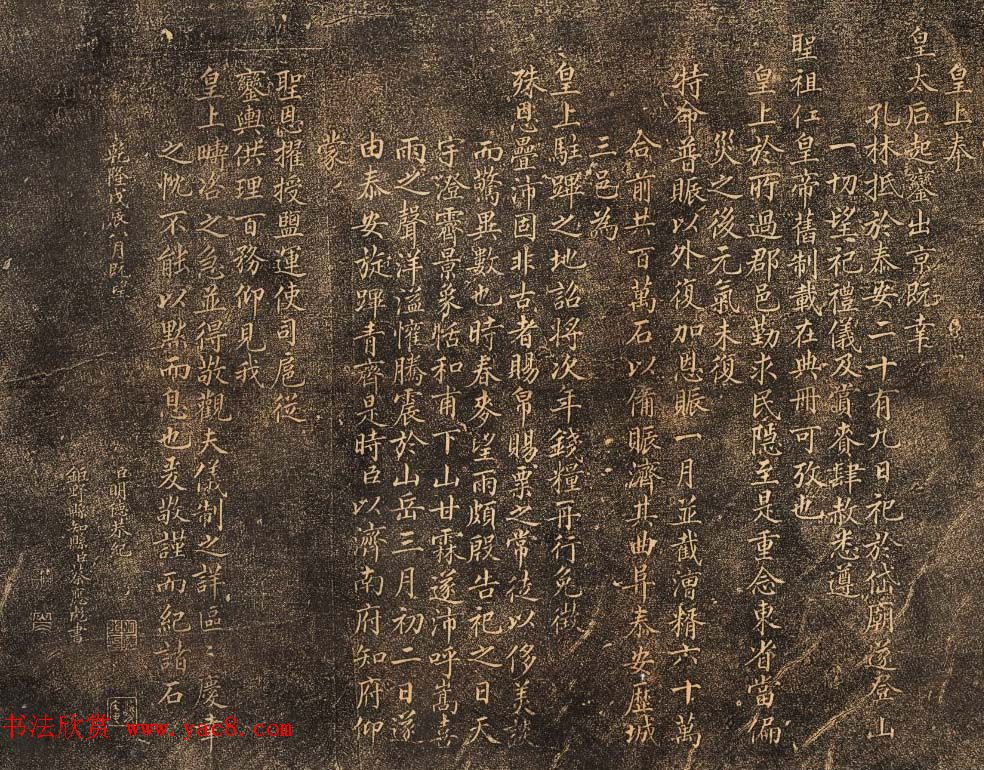 皇上奉
皇太后起鑾出京既幸
孔林抵於泰安二十有九日祀於岱廟遂登山
一切望祀禮儀及賞賚肆赦悉遵
聖祖仁皇帝舊制載在典冊可攷也
皇上於所過郡邑勤求民隱至是重念東省當偏
災之後元氣未復
特命普賑以外復加恩賑一月並截漕糈六十萬
合前共百萬石以備賑濟其曲阜泰安歷城
三邑為
皇上駐蹕之地詔將次年錢糧再行免徵
殊恩疊沛固非古者賜帛賜粟之常徒以侈美談
而驚異數也時春麥望雨頗殷告祀之日天
宇澄霽景象恬和甫下山甘霖遂沛呼嵩喜
雨之聲洋溢懽騰震於山岳三月初二日遂
由泰安旋蹕青齊是時臣以濟南府知府仰
蒙
聖恩擢授鹽運使司扈從
鑾輿供理百務仰見我
皇上疇咨之急並得敬觀夫儀制之詳區區慶幸
之忱不能以默而息也爰敬謹而紀諸石
乾隆戊辰八月既望
臣明德恭紀
鉅野縣知縣臣秦 書
书法欣赏 www.yac8.com